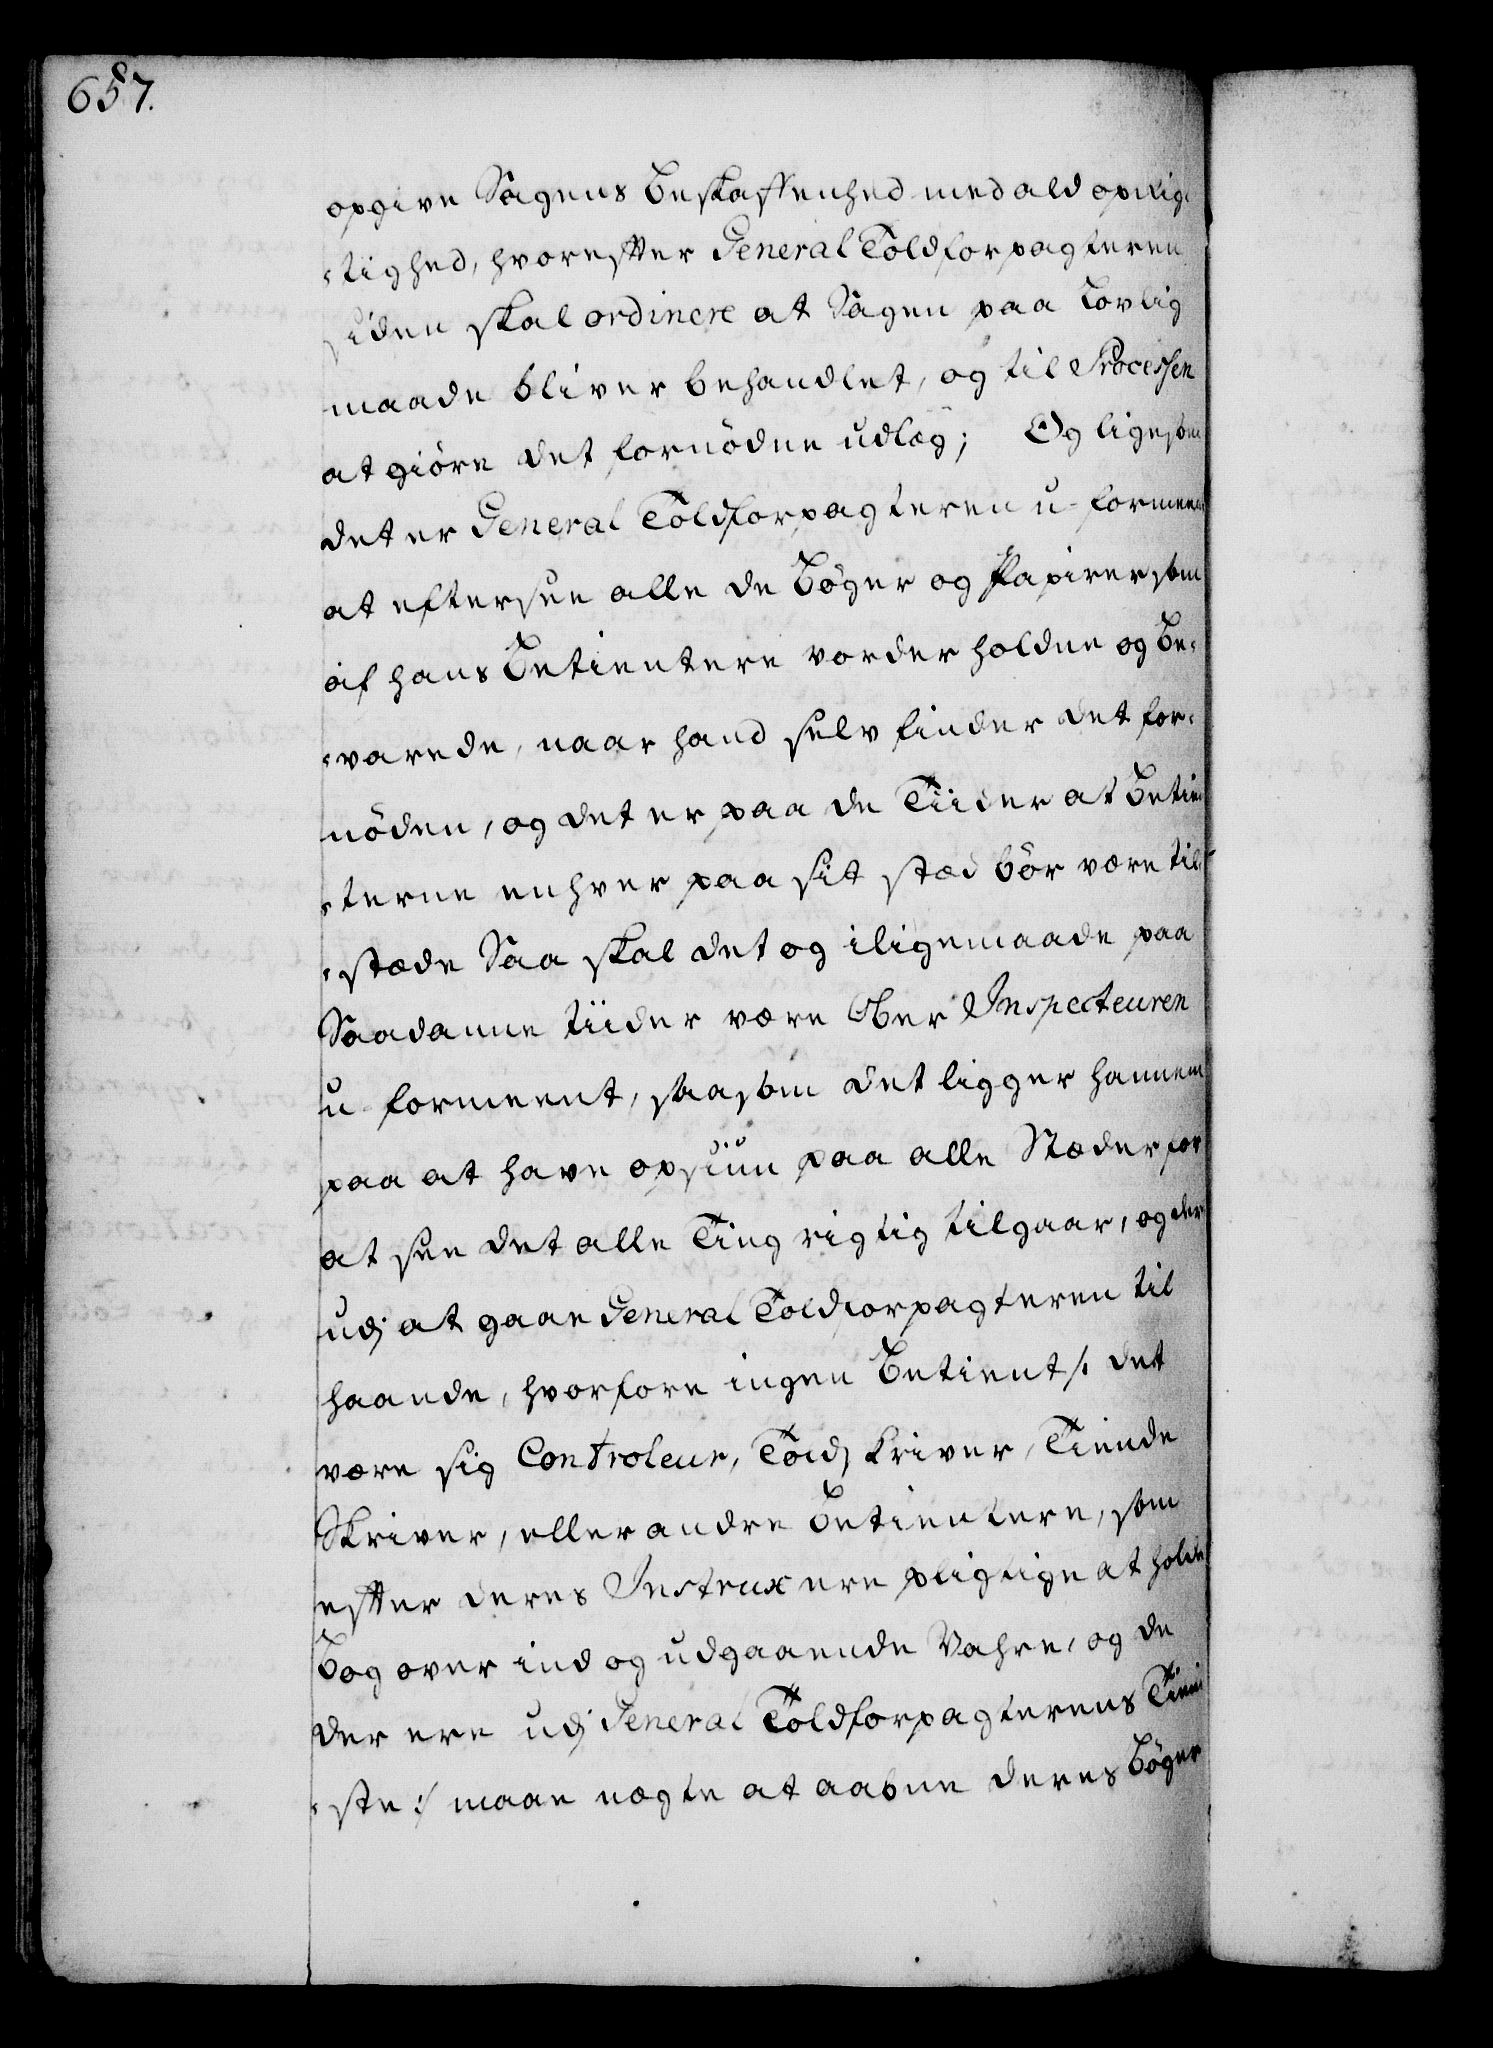 657.
opgive Sagens Beskaffenhed med ald oprig-
-tighed, hvorefter General Toldforpagteren
siden skal ordinere at Sagen paa Lovlig
maade bliver behandlet, og til Processen
at giöre det fornödne udlæg; Og ligesom
det er General Toldforpagteren u-formeent
at eftersee alle de Böger og Papirer som
af hans Betientere vorder holdne og Be-
-varede, naar hand selv finder det for-
nöden, og det er paa de Tiider at Betien
-terne enhver paa sit stæd bör være til
-stæde Saa skal det og iligemaade paa
Saadanne tiider være Ober Inspecteuren
u-formeent, saasom det ligger hannem
paa at have opsiun paa alle Stæder for
at see det alle Ting rigtig tilgaar, og der
udj at gaae General Toldforpagteren til
haande, hvorfore ingen Betient /: det
være sig Controleur, Toldskriver, Tiende
Skriver, eller andre Betientere, som
efter deres Instrux ere pligtige at holde
Bog over ind og udgaaende Vahre, og de
der ere udj General Toldforpagterens Tieni
-ste :/ maae nægte at aabne deres Böger